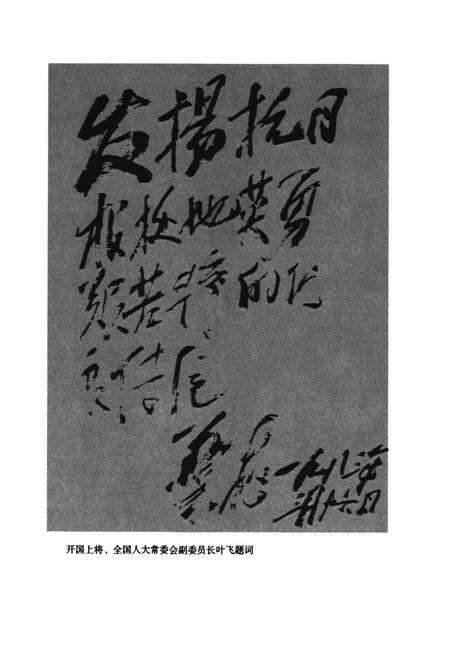 发扬抗日
根据地英勇
艰苦斗争的优
良传统
叶飞
一九八
月十六日
开国上将、全国人大常委会副委员长叶飞题词